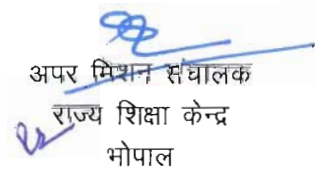 अपर मिशन संचालक
राज्य शिक्षा केन्द्र
भोपाल